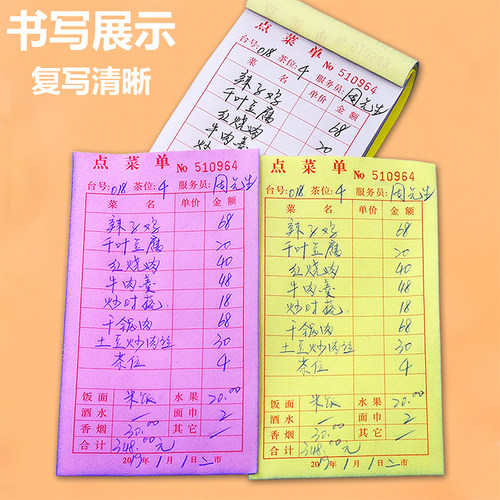 书写展示
复写清晰
点菜单
台号:018 茶位:4 服务员:周先生 No 510964
菜名 单价 金额
辣子鸡 68
千叶豆腐 20
红烧肉
牛肉羹
点菜单 No 510964
台号:018 茶位:4 服务员:周先生
菜名 单价 金额
辣子鸡 68
千叶豆腐 20
红烧肉 40
牛肉羹 48
炒时蔬 18
干锅肉 68
土豆炒肉丝 30
茶位 4
饭面 米饭 水果 20.00
酒水 — 面巾 2
香烟 30.00 其它 —
合计 348.00元
2019年1月1日 市
点菜单 No 510964
台号:018 茶位:4 服务员:周先生
菜名 单价 金额
辣子鸡 68
千叶豆腐 20
红烧肉 40
牛肉羹 48
炒时蔬 18
干锅肉 68
土豆炒肉丝 30
茶位 4
饭面 米饭 水果 20.00
酒水 — 面巾 2
香烟 30.00 其它 —
合计 348.00元
2019年1月1日 市